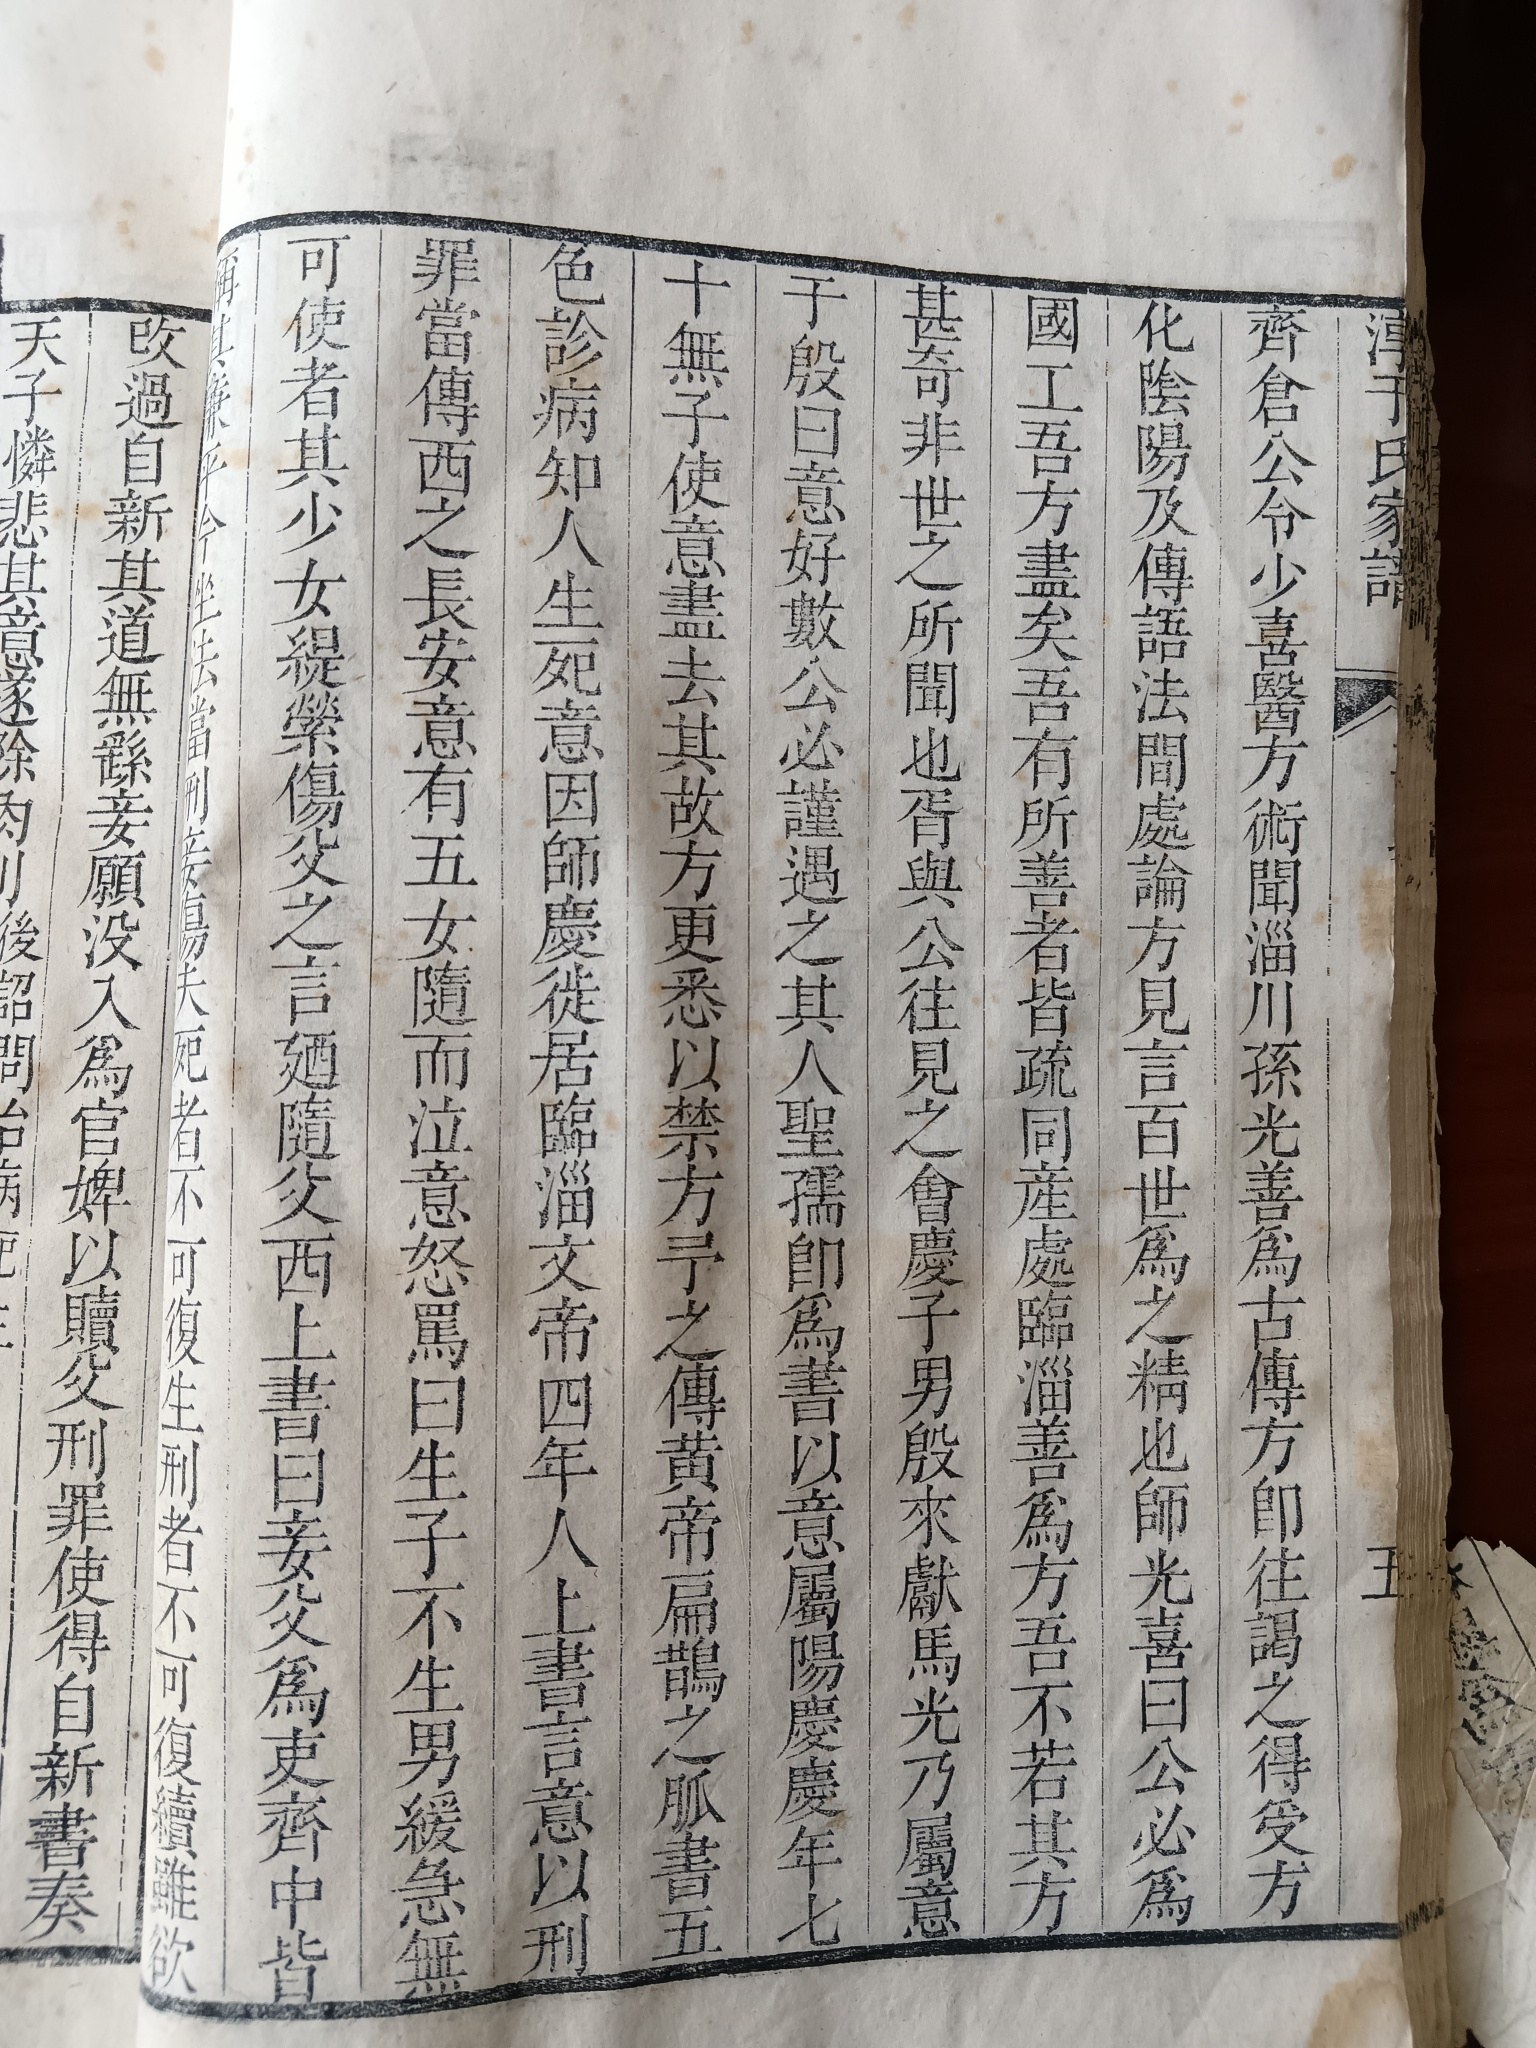 淳于氏家譜
五
齊倉公令少喜醫方術聞淄川孫光善爲古傳方卽往謁之得受方
化陰陽及傳語法間處論方見言百世爲之精也師光喜曰公必爲
國工吾方盡矣吾有所善者皆疏同産處臨淄善爲方吾不若其方
甚奇非世之所聞也胥與公往見之會慶子男殷來獻馬光乃屬意
于殷曰意好數公必謹遇之其人聖孺卽爲書以意屬陽慶慶年七
十無子使意盡去其故方更悉以禁方予之傳黃帝扁鵲之脈書五
色診病知人生死意因師慶徙居臨淄文帝四年人上書言意以刑
罪當傳西之長安意有五女隨而泣意怒罵曰生子不生男緩急無
可使者其少女緹縈傷父之言廼隨父西上書曰妾父爲吏齊中皆
稱其廉平今坐法當刑妾傷夫死者不可復生刑者不可復續雖欲
改過自新其道無繇妾願没入爲官婢以贖父刑罪使得自新書奏
天子憐悲其意遂除肉刑後詔問治病死生